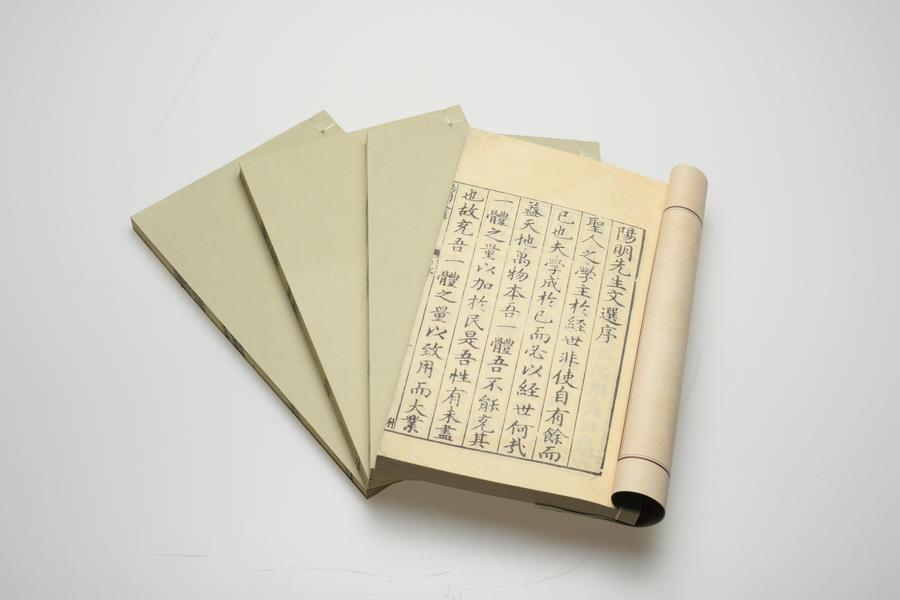 陽明先生文選序
聖人之學主於經世非使自有餘而
已也夫學成於己而必以經世何哉
葢天地萬物本吾一體吾不能充其
一體之量以加於民是吾性有未盡
也故充吾一體之量以致用而大業